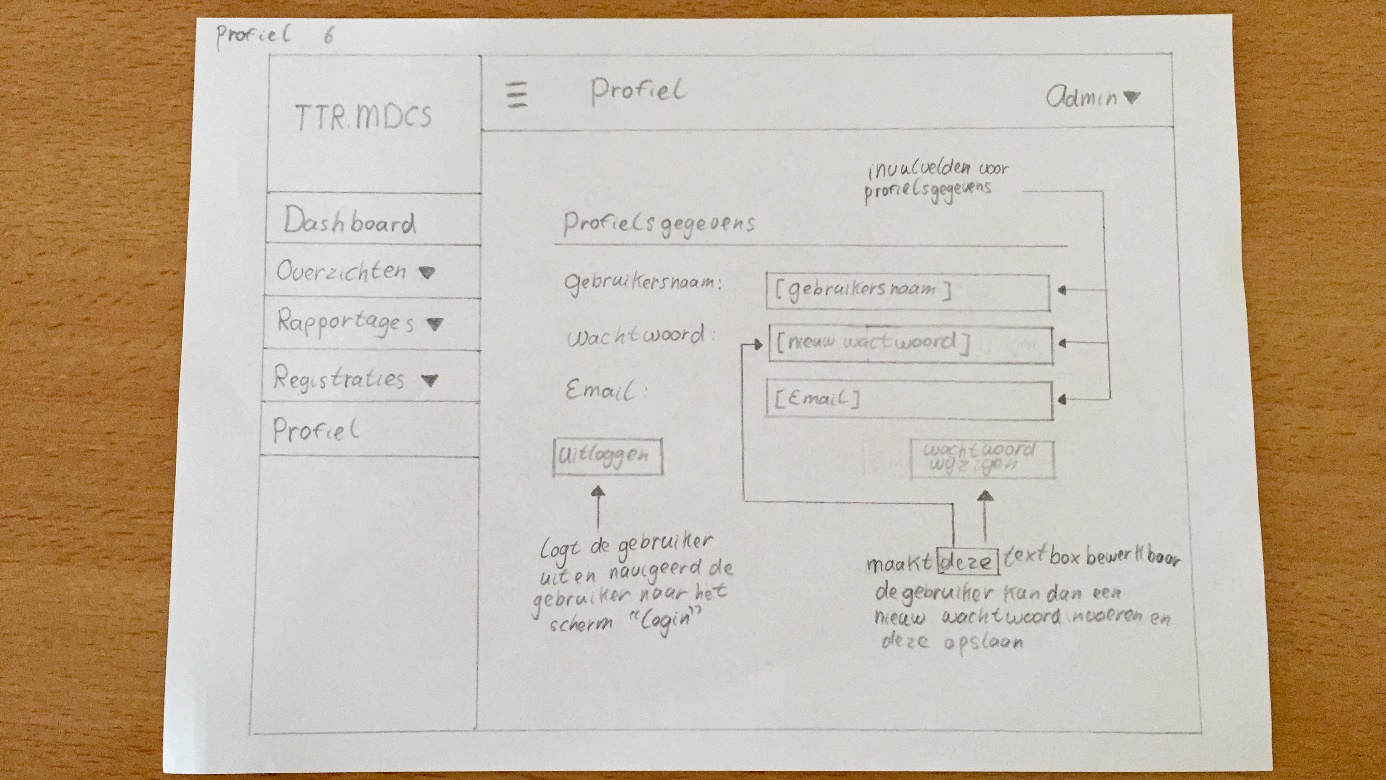 Profiel 6
TTR.MDCS
Profiel
Admin
Dashboard
Overzichten
Rapportages
Registraties
Profiel
invulvelden voor
profielsgegevens
Profielsgegevens
gebruikersnaam:
[gebruikersnaam]
wachtwoord:
[nieuw wactwoord]
Email:
[Email]
uitloggen
wachtwoord
wijzigen
logt de gebruiker
uit en navigeerd de
gebruiker naar het
scherm "Login"
maakt deze textbox bewerkbaar
de gebruiker kan dan een
nieuw wachtwoord en
deze opslaan